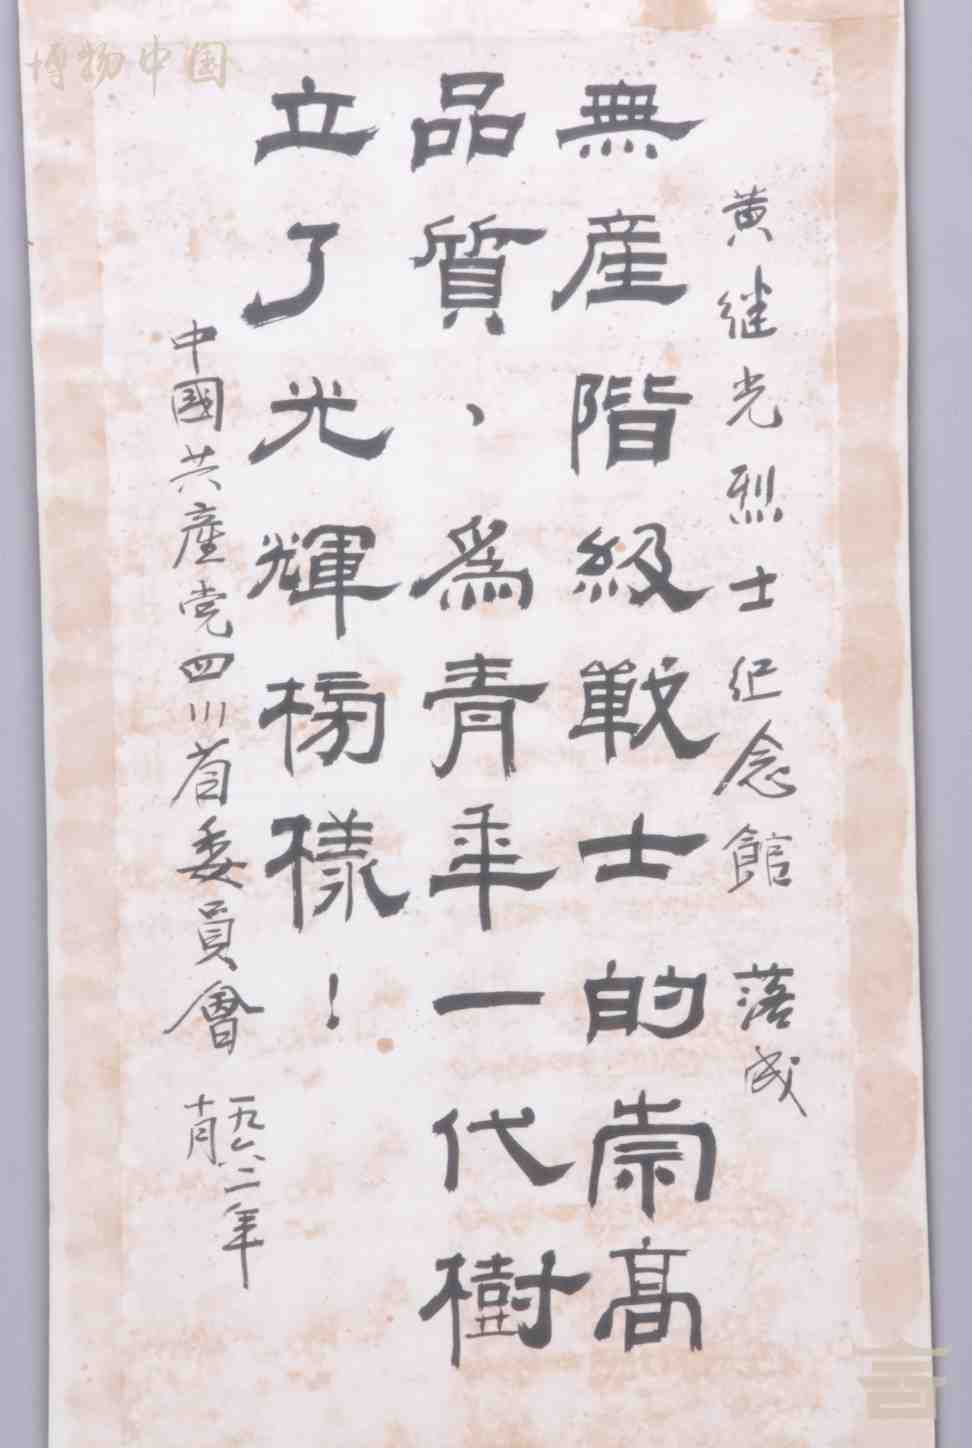 博物中国
黄继光烈士纪念館 落成
無産階級戰士的崇高
品質、爲青年一代樹
立了光輝榜樣！
中國共產党四川省委員會
一九六二年
十月